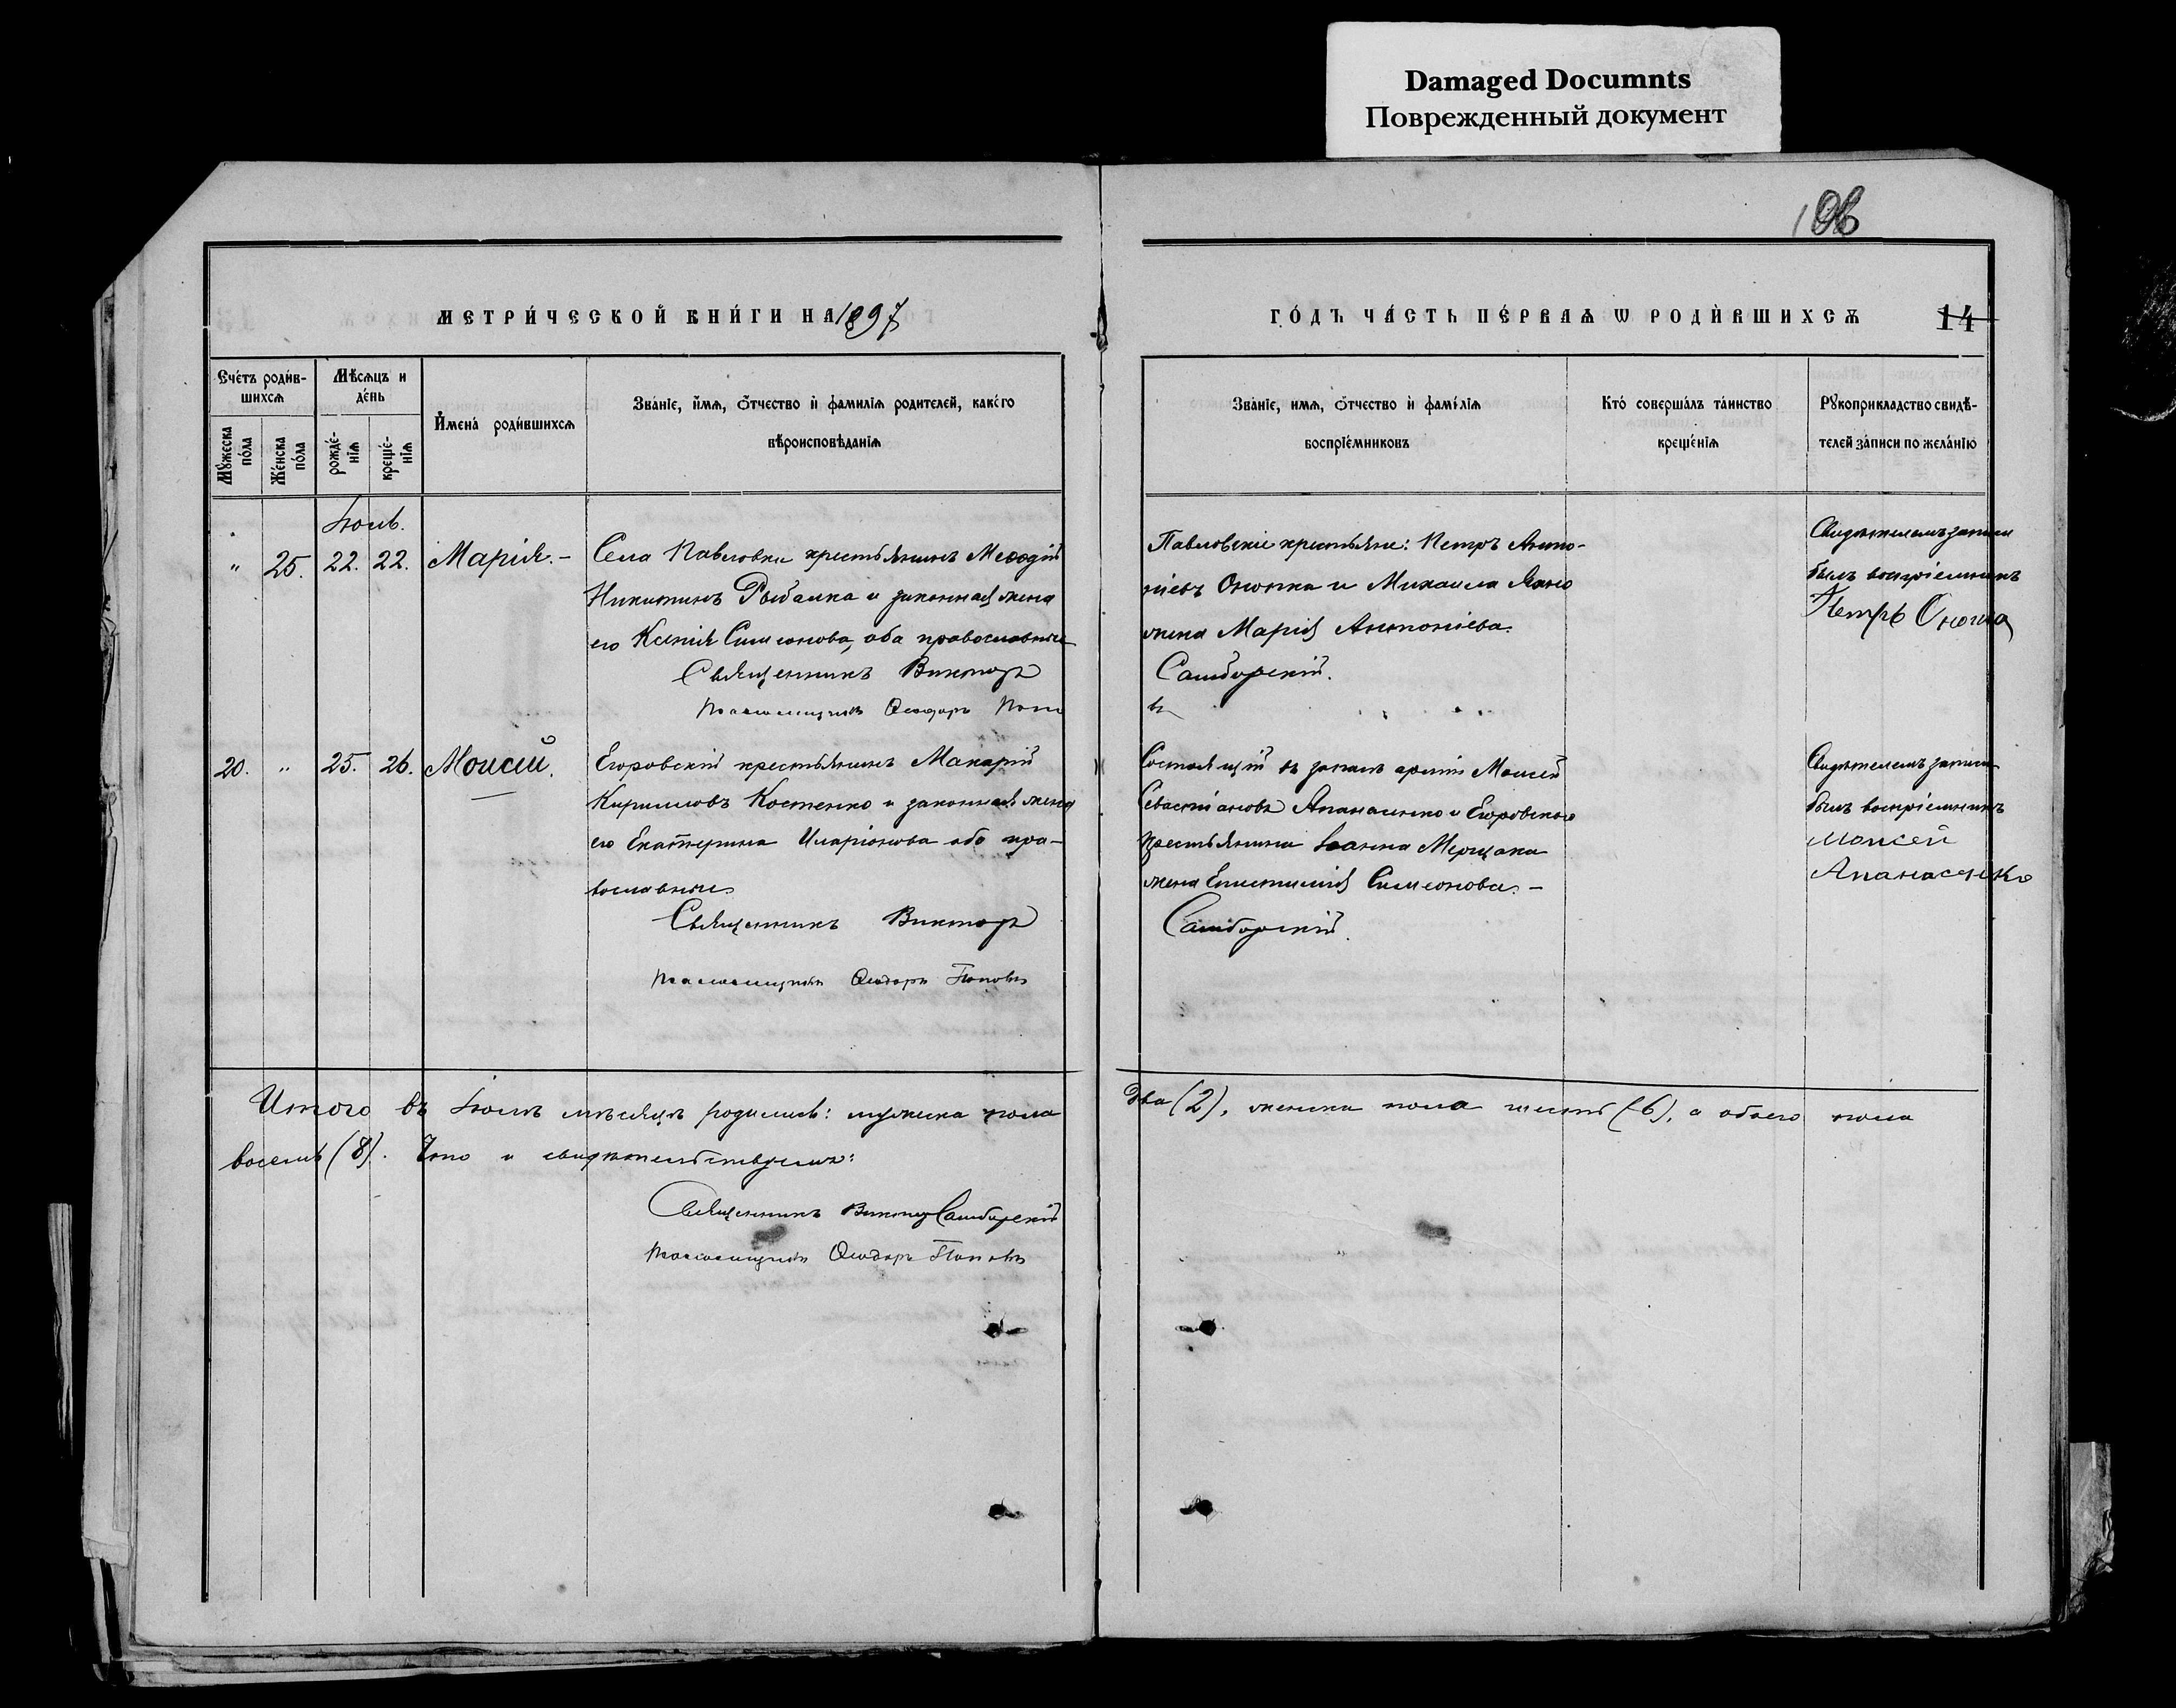 Damaged Documnts
Поврежденный документ
106
МЕТРИ́ЧЕСКОЙ КНИ́ГИ НА 1897
ГО́ДЪ ЧА́СТЬ ПЕ́РВАѦ Ѡ РОДИ́ВШИХСѦ
14
Сче́тъ роди́в-
шихсѧ
Мѣ́сѧцъ и
де́нь
Мꙋ́жеска
по́ла
Же́нска
по́ла
рожде́-
нїѧ
креще́-
нїѧ
И҆мена́ роди́вшихсѧ
Зва́нїе, и҆́мѧ, ѻ҆́тчество и҆ фами́лїѧ роди́телей, како́го
вѣроисповѣ́данїѧ
Зва́нїе, имѧ, ѻ҆́тчество и҆ фами́лїѧ
воспрїе́мниковъ
Кто́ соверша́лъ та́инство
креще́нїѧ
Рꙋкоприкла́дство свидѣ́-
телей за́писи по жела́нїю
Іюль.
" 25. 22. 22. Марія. –
Села Павловки крестьянинъ Меѳодій
Никитинъ Рыбалка и законная жена
его Ксенія Симеонова, оба православные
Священникъ Викторъ
Псаломщикъ Ѳеодоръ Попо
Павловскіе крестьяне: Петръ Анто-
ніевъ Онопка и Михаила
жена Марія Антоніева.
Самборскій.
въ
Свидѣтелемъ записи
былъ воспріемникъ
Петръ
20. " 25. 26. Моисей.
Егоровскій крестьянинъ Макарій
Кирилловъ Костенко и законная жена
его Екатерина Иларіонова оба пра-
вославные
Священникъ Викторъ
Псаломщикъ Ѳеодоръ Поповъ
Состоящій въ запасѣ арміи Моисей
Севастіановъ Апанасенко и Егоровского
крестьянина Іоанна
жена Епистимія Симеонова. –
Самборскій.
Свидѣтелемъ записи
былъ воспріемникъ
Моисей
Апанасенко
Итого въ Іюлѣ мѣсяцѣ родилось: мужеска пола
два (2), женска пола шесть (6), а обоего пола
восемь (8). Что и свидѣтельствуемъ:
Священникъ Викторъ Самборскій
Псаломщикъ Ѳеодоръ Поповъ